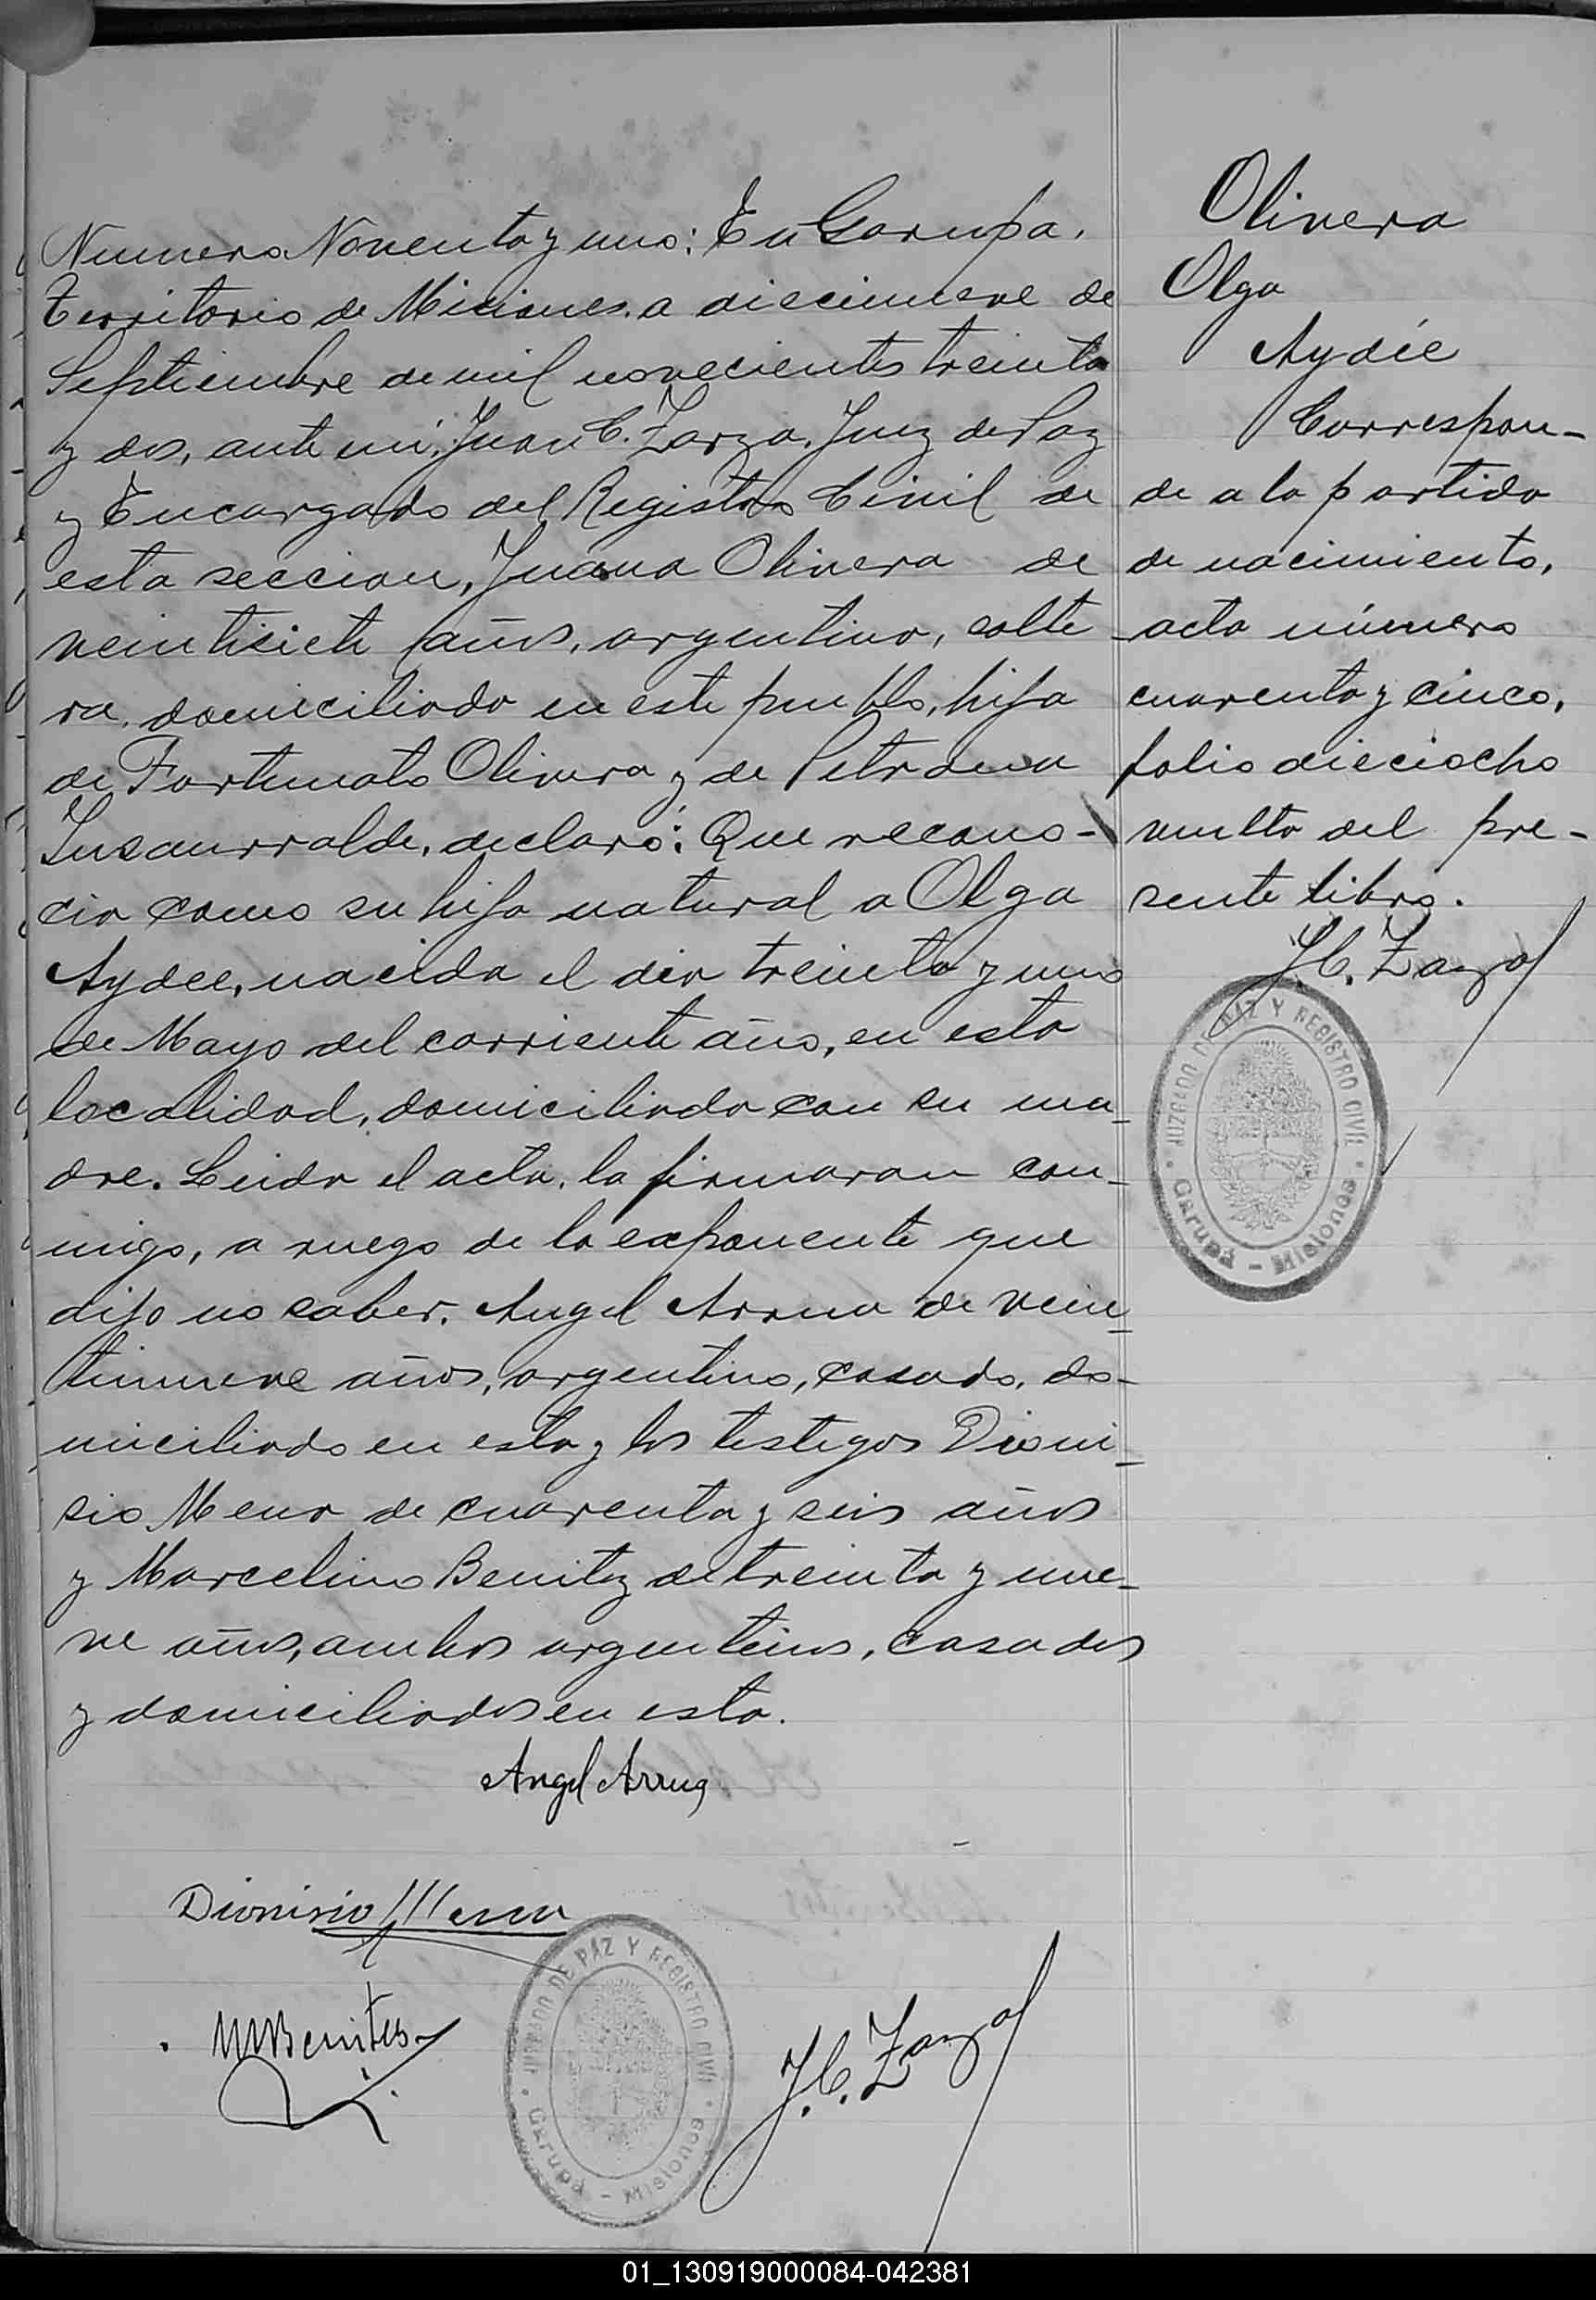 Numero Noventa y uno: En Garupa,
Territorio de Misiones a diecinueve de
Septiembre de mil novecientos treinta
y dos, ante mi, Juan C. Zarza, Juez de Paz
y Encargado del Registro Civil de
esta seccion, Juana Olivera de
veintisiete años, argentina, solte
ra, domiciliada en este pueblo, hija
de Fortunato Olivera y de Petrona
Insaurralde, declaró: Que recono-
cia como su hija natural a Olga
Aydee, nacida el dia treinta y uno
de Mayo del corriente año, en esta
localidad, domiciliada con su ma-
dre. Leida el acta, la firmaron con-
migo, a ruego de la exponente que
dijo no saber, Angel Arrua de vein-
tinueve años, argentino, casado, do-
miciliado en esta y los testigos Dioni-
sio Mena de cuarenta y seis años
y Marcelino Benitez de treinta y nue-
ve años, ambos argentinos, casados
y domiciliados en esta.
Angel Arrua
Dionisio Mena
M Benites
JUZGADO DE PAZ Y REGISTRO CIVIL
Garupá - Misiones
J.C. Zarza
Olivera
Olga
Aydée
Correspon-
de a la partida
de nacimiento,
acta número
cuarenta y cinco,
folio dieciocho
vuelta del pre-
sente libro.
J.C. Zarza
JUZGADO DE PAZ Y REGISTRO CIVIL
Garupá - Misiones
01_130919000084-042381